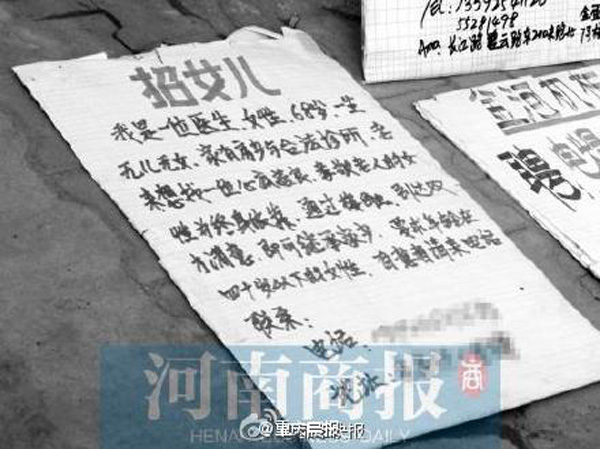 Tel: 13592541120
55281498
招女儿
我是一位医生,女性,68岁,一生
无儿无女,家有私房与合法诊所,老
来想找一位心底善良,孝敬老人的女
性为终身依靠,通过接触,到达双
方满意,即可继承家业,要求年龄在
四十岁以下的女性,有意者请来电话
联系:
电话:
地址:
聘
河南商报
HENAN BUSINESS DAILY
重庆晨报快报